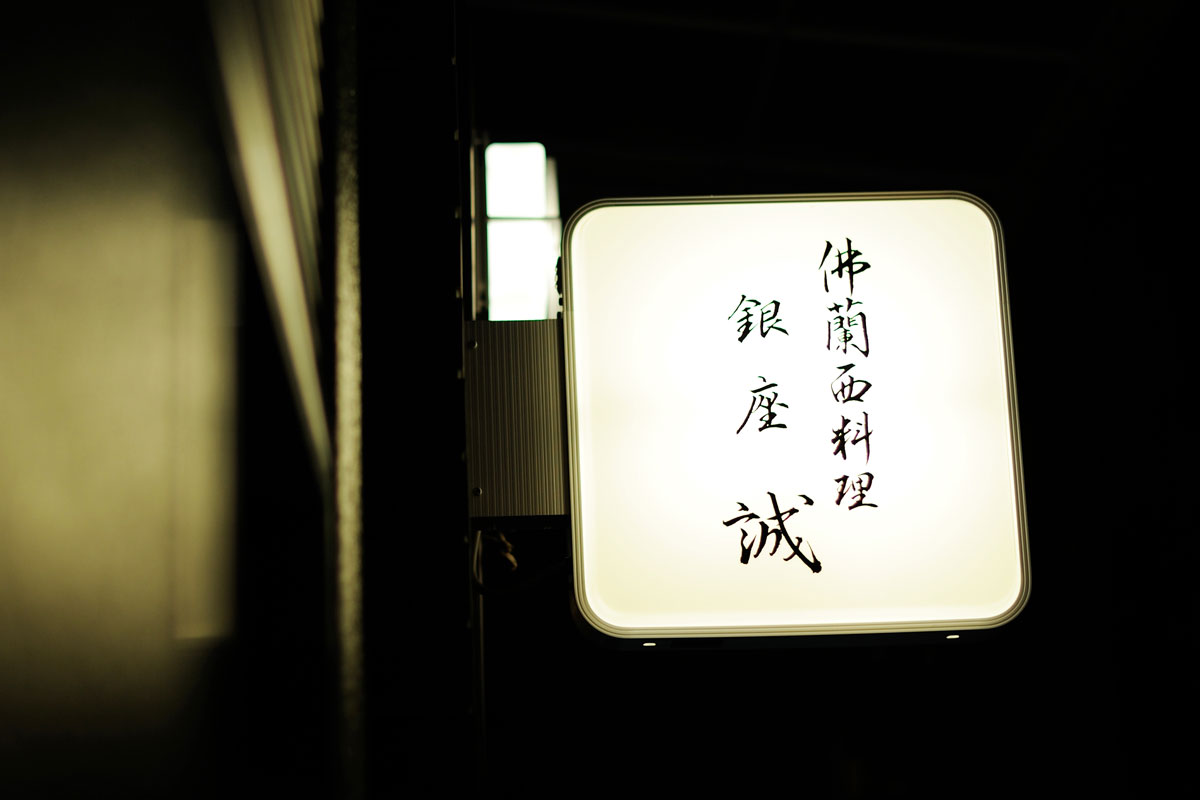 佛蘭西料理
銀座 誠